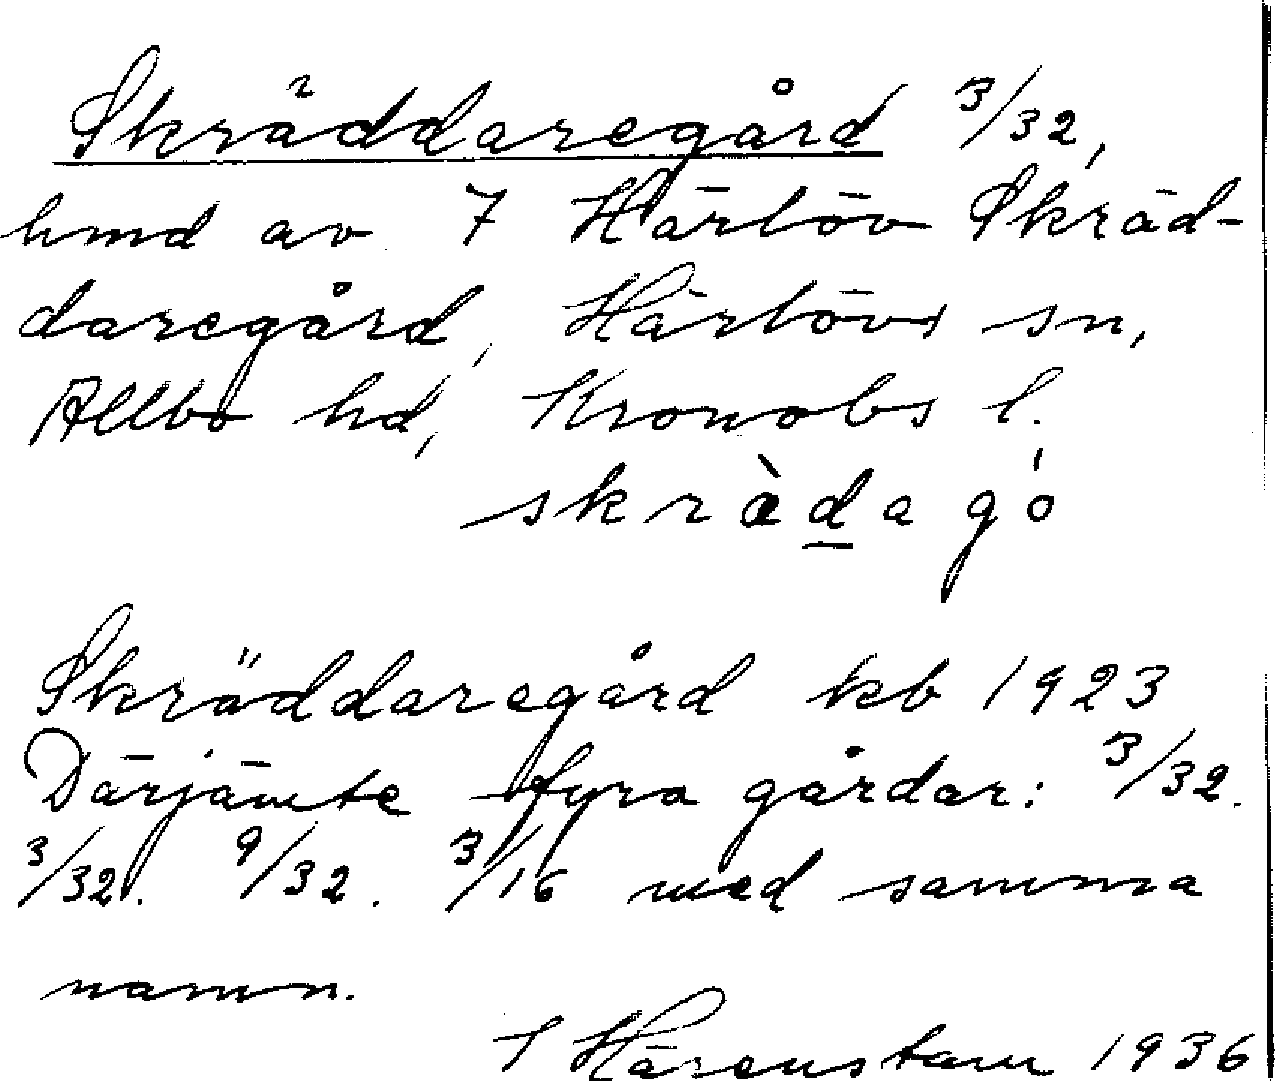 Skräddaregård 3/32,
hmd av 7 Härlöv Skräd-
daregård, Härlövs sn,
Allbo hd, Kronobs l.
skrὰdagó
Skräddaregård kb 1923
Därjämte fyra gårdar: 3/32.
3/32. 9/32. 3/16 med samma
namn.
I Hårenstam 1936